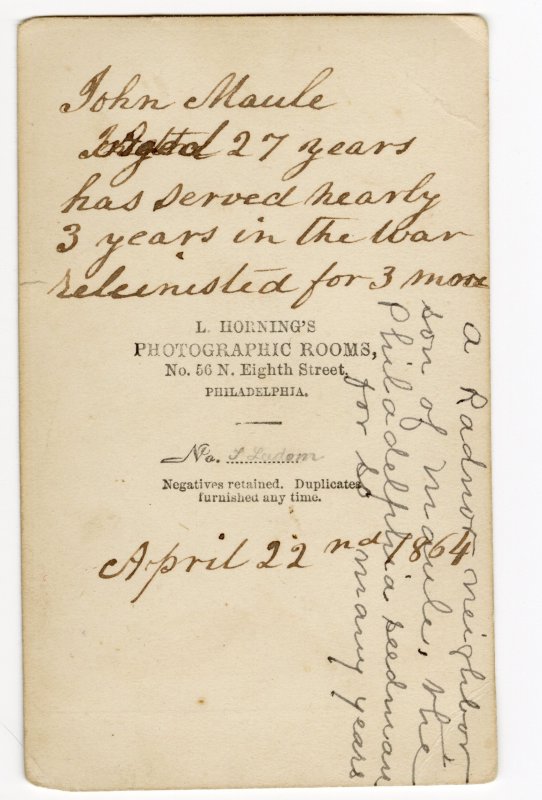 John Maule
Aged 27 years
has served nearly
3 years in the war
releinisted for 3 more
L. HORNING'S
PHOTOGRAPHIC ROOMS,
No. 56 N. Eighth Street,
PHILADELPHIA.
No.
Negatives retained. Duplicates
furnished any time.
April 22nd 1864
a Radnor neighbor
son of Maule, the
Philadelphia seedman
for so many years